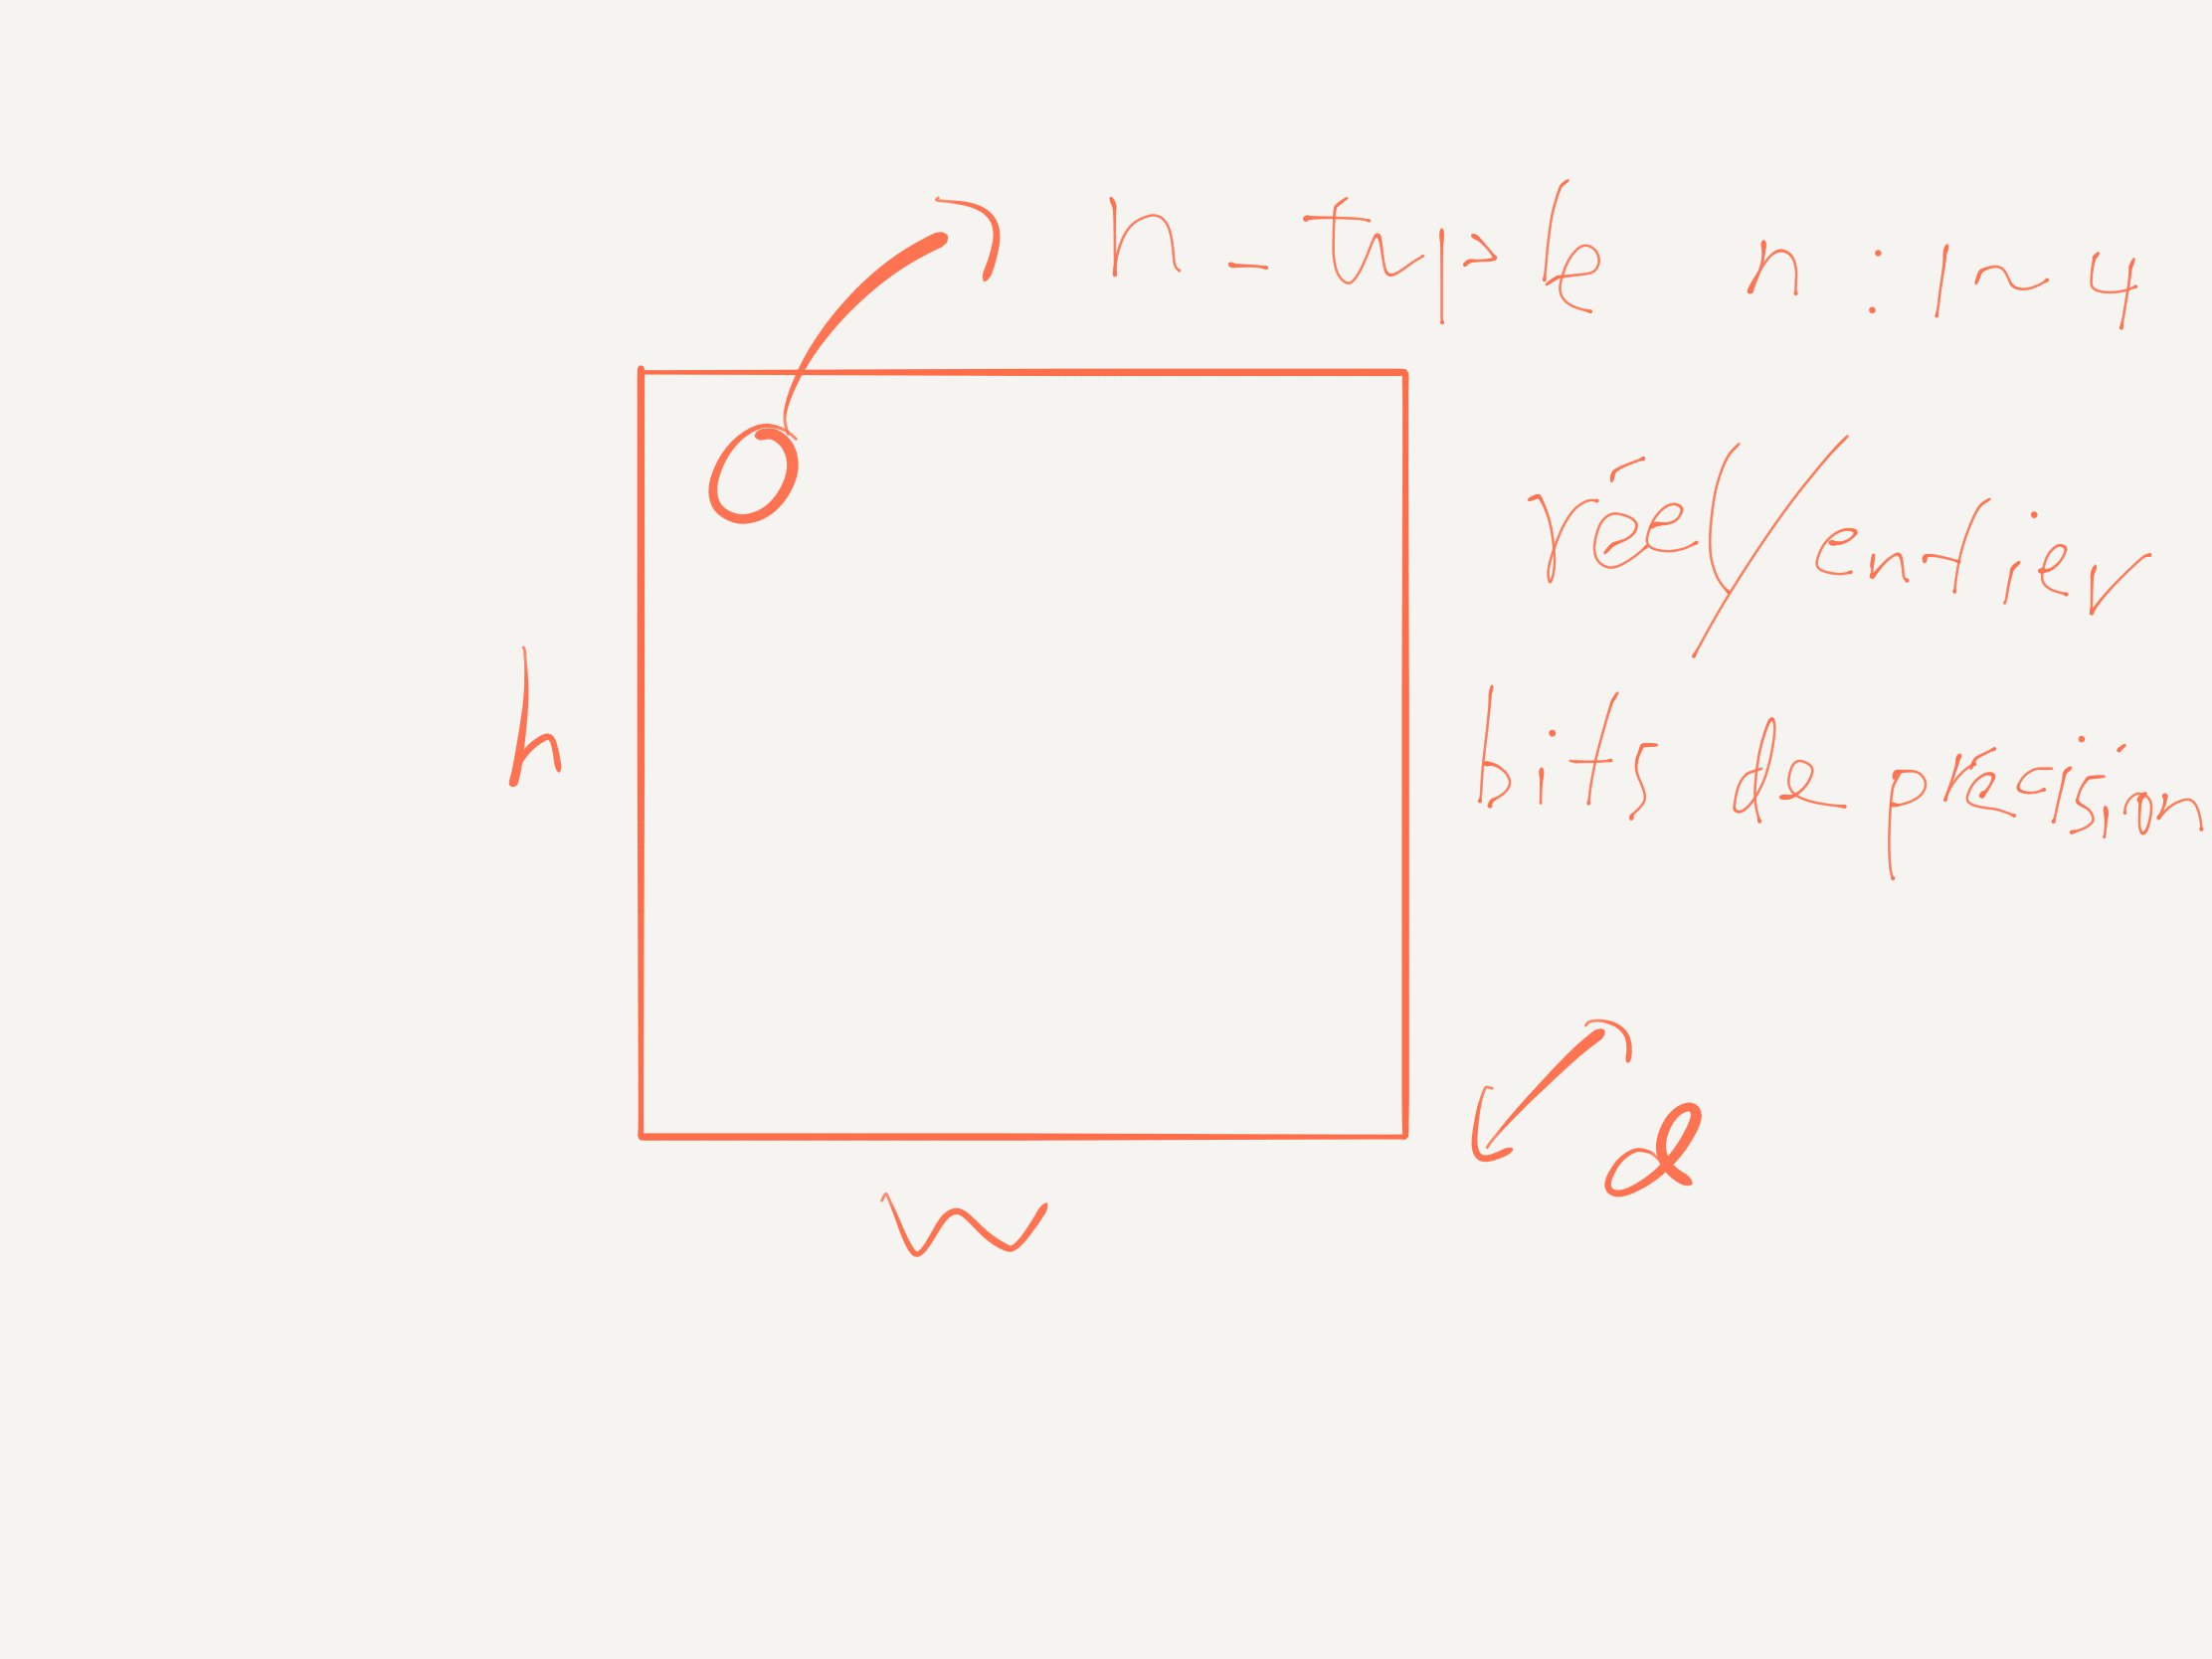 n-tuple n : 1 ~ 4
réel/entier
h
bits de précision
d
w